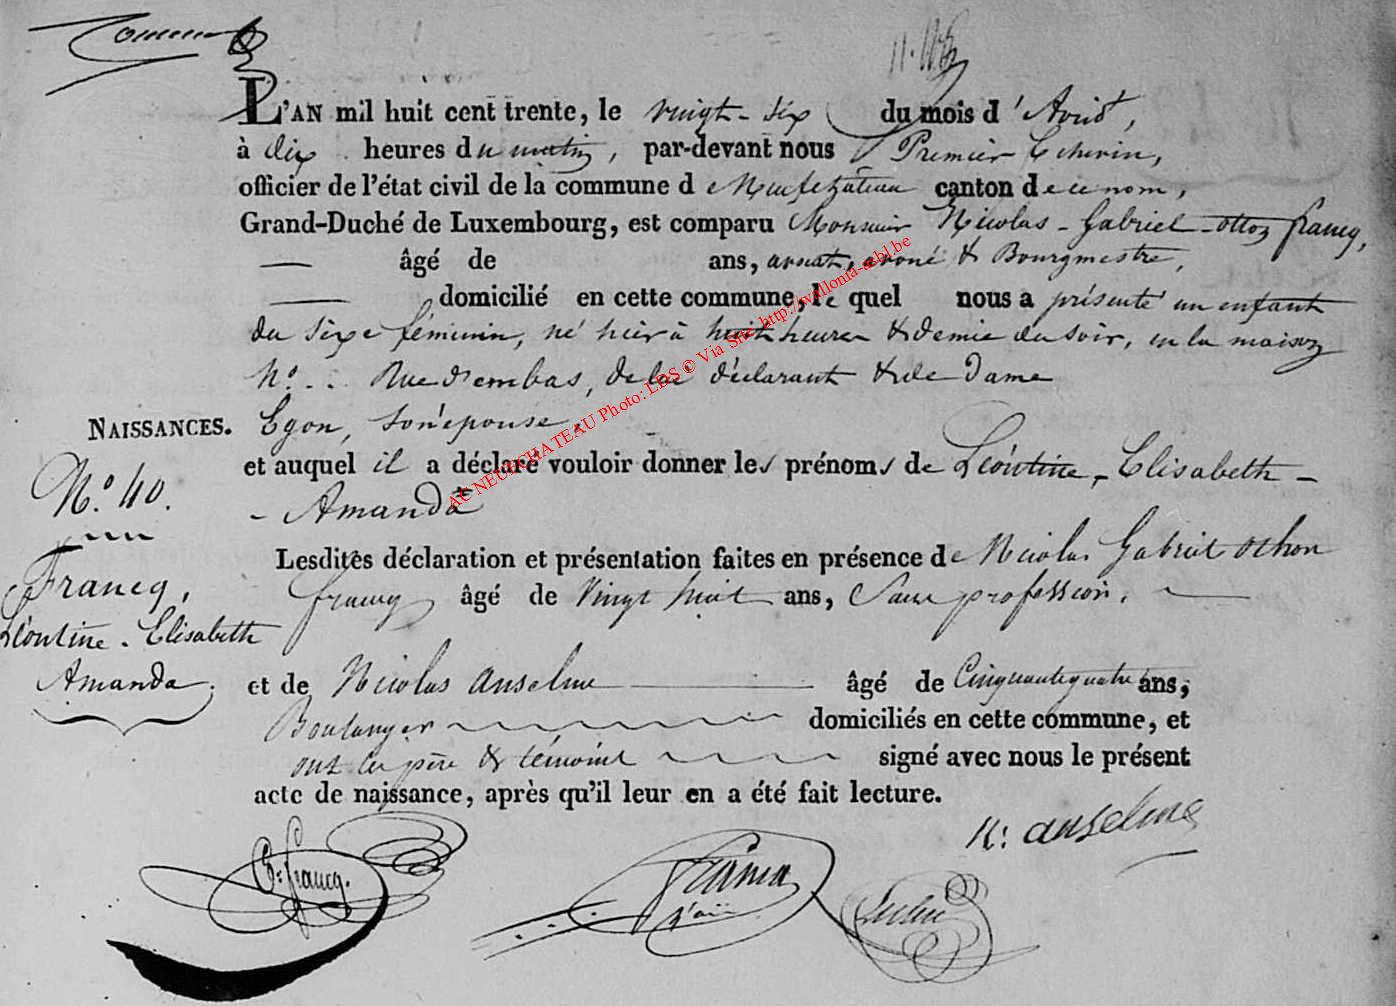 L'AN mil huit cent trente, le vingt-six du mois d'Avril,
à dix heures du matin, par-devant nous Premier Echevin,
officier de l'état civil de la commune de Neufchâteau canton de ce nom,
Grand-Duché de Luxembourg, est comparu Monsieur Nicolas-Gabriel-otton francq,
— âgé de ans, avocat, avoué & Bourgmestre,
— domicilié en cette commune, le quel nous a présenté un enfant
du sexe féminin, né hier à huit heures & demie du soir, en la maison
N°. .. Rue d'embas, de lui déclarant & de Dame
NAISSANCES. Egon, son épouse,
et auquel il a déclaré vouloir donner les prénoms de Léontine-Elisabeth-
N.° 40. - Amanda
Lesdites déclaration et présentation faites en présence de Nicolas Gabriel othon
Francq, francq âgé de Vingt huit ans, Sans profession,
Léontine-Elisabeth
Amanda. et de Nicolas anselme âgé de Cinquante quatre ans,
Boulanger domiciliés en cette commune, et
ont les père & témoins signé avec nous le présent
acte de naissance, après qu'il leur en a été fait lecture.
N: anselme
francq.
AC NEUFCHATEAU Photo: LDS © Via Site http://wallonia-asbl.be